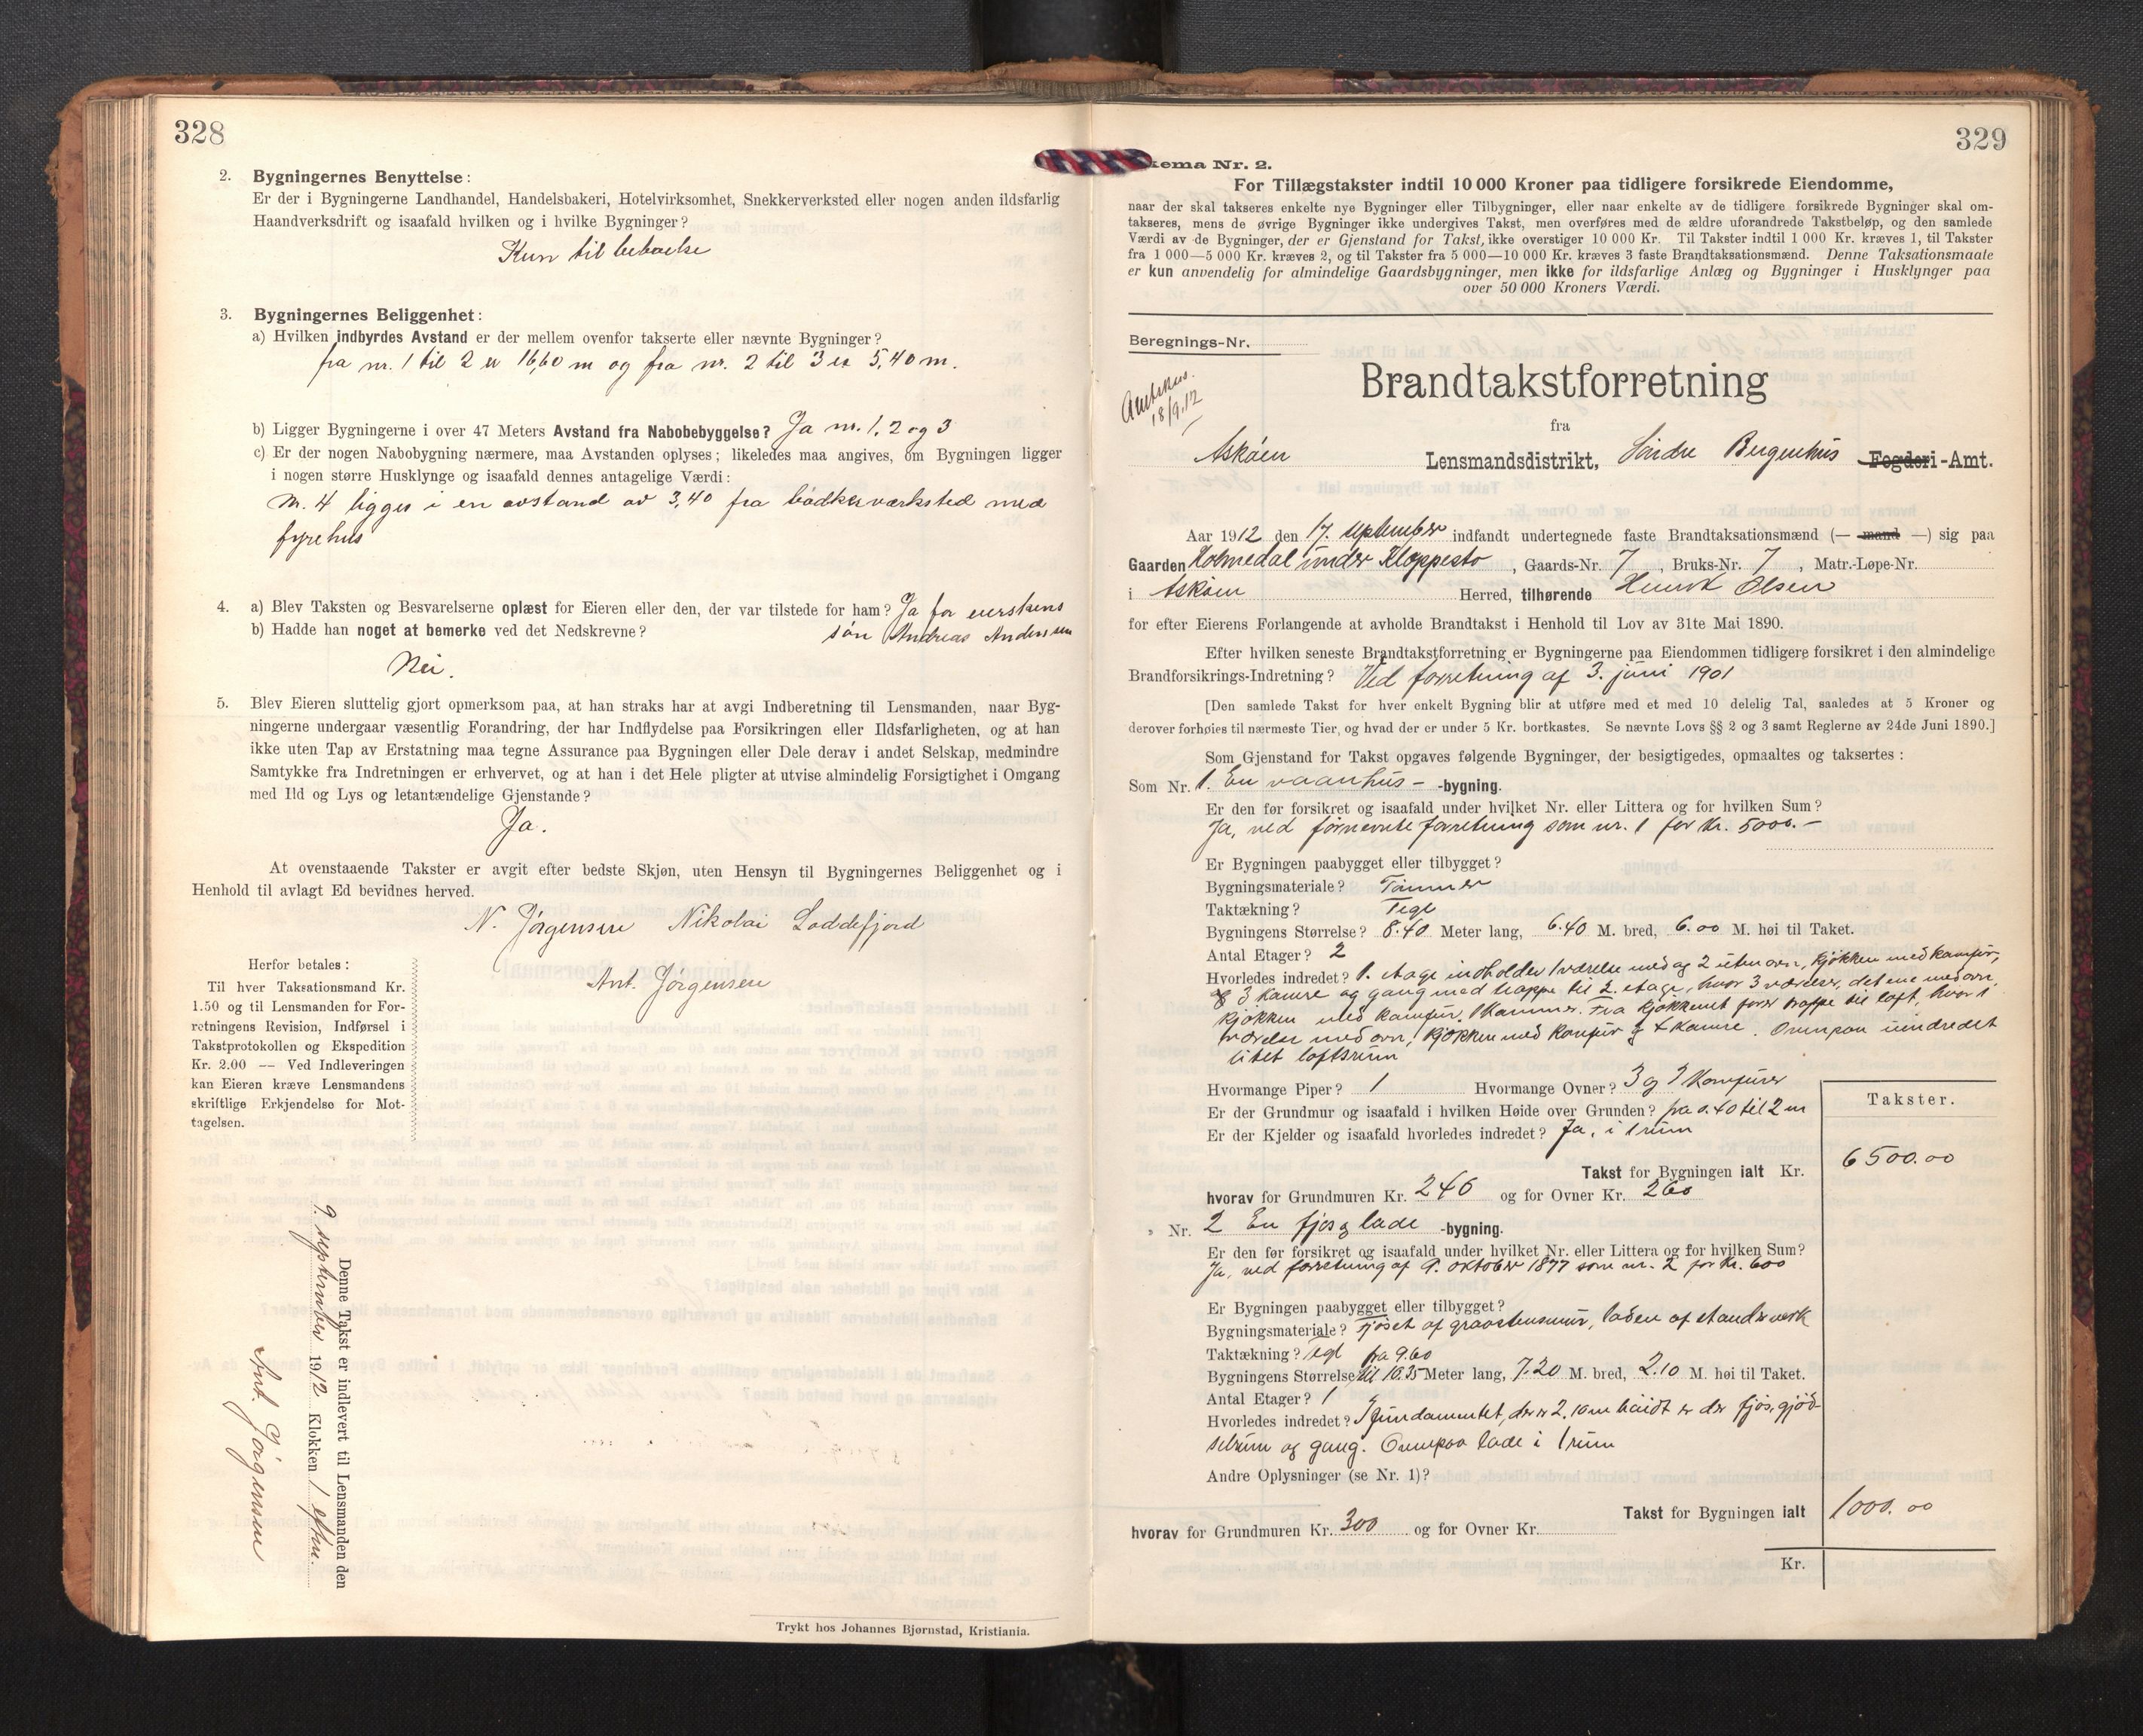 328
2. Bygningernes Benyttelse:
Er der i Bygningerne Landhandel, Handelsbakeri, Hotelvirksomhet, Snekkerverksted eller nogen anden ildsfarlig
Haandverksdrift og isaafald hvilken og i hvilke Bygninger?
Kun til beboelse
3. Bygningernes Beliggenhet:
a) Hvilken indbyrdes Avstand er der mellem ovenfor takserte eller nævnte Bygninger?
fra nr. 1 til 2 er 16,60 m og fra nr. 2 til 3 er 5,40 m.
b) Ligger Bygningerne i over 47 Meters Avstand fra Nabobebyggelse? Ja nr. 1, 2 og 3
c) Er der nogen Nabobygning nærmere, maa Avstanden oplyses; likeledes maa angives, om Bygningen ligger
i nogen større Husklynge og isaafald dennes antagelige Værdi:
Nr. 4 ligger i en avstand av 3,40 fra bødkerværksted med
fyrehus
4. a) Blev Taksten og Besvarelserne oplæst for Eieren eller den, der var tilstede for ham? Ja for eierskens
b) Hadde han noget at bemerke ved det Nedskrevne? søn Andreas Anderssen
Nei.
5. Blev Eieren sluttelig gjort opmerksom paa, at han straks har at avgi Indberetning til Lensmanden, naar Byg-
ningerne undergaar væsentlig Forandring, der har Indflydelse paa Forsikringen eller Ildsfarligheten, og at han
ikke uten Tap av Erstatning maa tegne Assurance paa Bygningen eller Dele derav i andet Selskap, medmindre
Samtykke fra Indretningen er erhvervet, og at han i det Hele pligter at utvise almindelig Forsigtighet i Omgang
med Ild og Lys og letantændelige Gjenstande?
Ja.
At ovenstaaende Takster er avgit efter bedste Skjøn, uten Hensyn til Bygningernes Beliggenhet og i
Henhold til avlagt Ed bevidnes herved.
N. Jørgensen Nikolai Loddefjord
Ant. Jørgensen
Herfor betales:
Til hver Taksationsmand Kr.
1.50 og til Lensmanden for For-
retningens Revision, Indførsel i
Takstprotokollen og Ekspedition
Kr. 2.00 — Ved Indleveringen
kan Eieren kræve Lensmandens
skriftlige Erkjendelse for Mot-
tagelsen.
Denne Takst er indlevert til Lensmanden den
9. september 1912 Klokken 1 efm.
Ant. Jørgensen
Trykt hos Johannes Bjørnstad, Kristiania.
329
kema Nr. 2.
For Tillægstakster indtil 10 000 Kroner paa tidligere forsikrede Eiendomme,
naar der skal takseres enkelte nye Bygninger eller Tilbygninger, eller naar enkelte av de tidligere forsikrede Bygninger skal om-
takseres, mens de øvrige Bygninger ikke undergives Takst, men overføres med de ældre uforandrede Takstbeløp, og den samlede
Værdi av de Bygninger, der er Gjenstand for Takst, ikke overstiger 10 000 Kr. Til Takster indtil 1 000 Kr. kræves 1, til Takster
fra 1 000—5 000 Kr. kræves 2, og til Takster fra 5 000—10 000 Kr. kræves 3 faste Brandtaksationsmænd. Denne Taksationsmaate
er kun anvendelig for almindelige Gaardsbygninger, men ikke for ildsfarlige Anlæg og Bygninger i Husklynger paa
over 50 000 Kroners Værdi.
Beregnings-Nr.
18/9.12
Brandtakstforretning
fra
Askøen Lensmandsdistrikt, Søndre Bergenhus Fogderi-Amt.
Aar 1912 den 17. september indfandt undertegnede faste Brandtaksationsmænd (— mand —) sig paa
Gaarden Holmedal under Kleppestø, Gaards-Nr. 7, Bruks-Nr. 7, Matr.-Løpe-Nr.
i Askøen Herred, tilhørende Henrik Olsen
for efter Eierens Forlangende at avholde Brandtakst i Henhold til Lov av 31te Mai 1890.
Efter hvilken seneste Brandtakstforretning er Bygningerne paa Eiendommen tidligere forsikret i den almindelige
Brandforsikrings-Indretning? Ved forretning af 3. juni 1901
[Den samlede Takst for hver enkelt Bygning blir at utføre med et med 10 delelig Tal, saaledes at 5 Kroner og
derover forhøies til nærmeste Tier, og hvad der er under 5 Kr. bortkastes. Se nævnte Lovs §§ 2 og 3 samt Reglerne av 24de Juni 1890.]
Som Gjenstand for Takst opgaves følgende Bygninger, der besigtigedes, opmaaltes og taksertes:
Som Nr. 1. En vaanhus- -bygning.
Er den før forsikret og isaafald under hvilket Nr. eller Littera og for hvilken Sum?
Ja, ved førnevnte forretning som nr. 1 for kr. 5000.-
Er Bygningen paabygget eller tilbygget?
Bygningsmateriale? Tømmer
Taktækning? Tegl
Bygningens Størrelse? 8.40 Meter lang, 6.40 M. bred, 6.00 M. høi til Taket.
Antal Etager? 2
Hvorledes indredet? 1. etage indholder 1 værelse med og 2 uten ovn, kjøkken med komfur,
3 kamre og gang med trappe til 2. etage, hvor 3 værelser, det ene med ovn,
kjøkken med komfur, 1 kammer. Fra kjøkkenet fører trappe til loft, hvor 1
værelse med ovn, kjøkken med komfur og 4 kamre. Ovenpaa uindredet
litet loftsrum
Hvormange Piper? 1 Hvormange Ovner? 3 og 3 komfurer
Er der Grundmur og isaafald i hvilken Høide over Grunden? fra 0.40 til 2 m
Er der Kjelder og isaafald hvorledes indredet? Ja, i 1 rum
Takster.
Takst for Bygningen ialt Kr. 6500.00
hvorav for Grundmuren Kr. 240 og for Ovner Kr. 260
" Nr. 2 En fjøs og lade -bygning.
Er den før forsikret og isaafald under hvilket Nr. eller Littera og for hvilken Sum?
Ja, ved forretning af 9. oktober 1877 som nr. 2 for kr. 600
Er Bygningen paabygget eller tilbygget?
Bygningsmateriale? Fjøset af graastensmur, laden af standverk
Taktækning? Tegl fra 9.60
Bygningens Størrelse? til 10.35 Meter lang, 7.20 M. bred, 2.10 M. høi til Taket.
Antal Etager? 1
Hvorledes indredet? I fundamentet, der er 2.10 m høidt er der fjøs, gjød-
selrum og gang. Ovenpaa lade i 1 rum
Andre Oplysninger (se Nr. 1)?
Takst for Bygningen ialt 1000.00
hvorav for Grundmuren Kr. 300 og for Ovner Kr.
Kr.